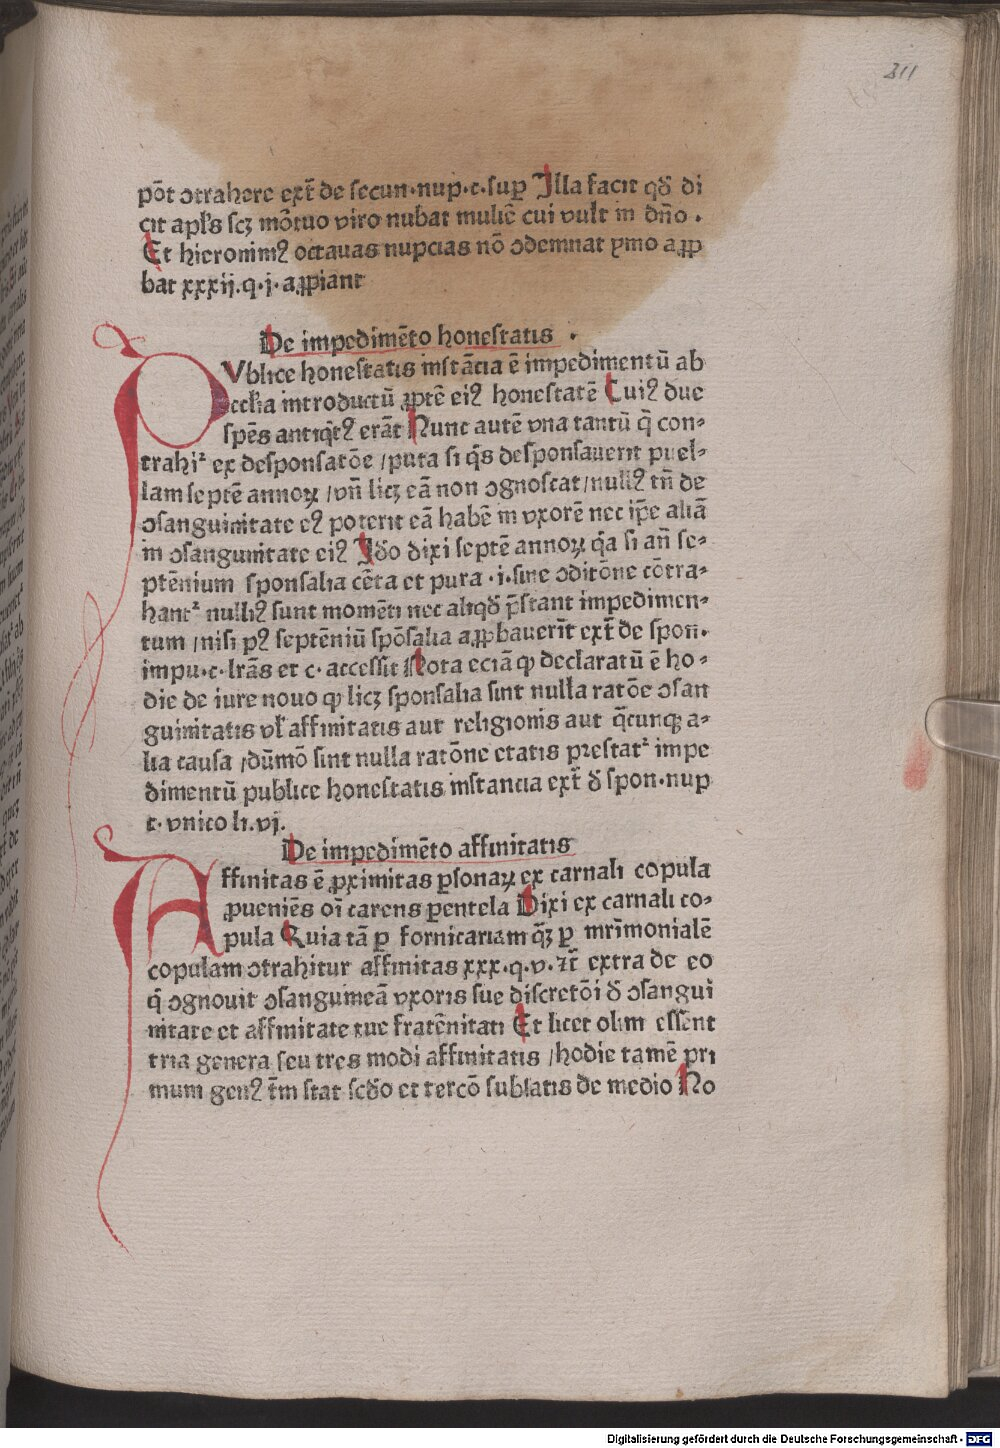 311
põt ↄtrahere ext̃ de secun·nup·c·sup Illa facit qđ di
cit apl̃s scꝫ mõtuo viro nubat muliẽ cui vult in dño ·
Et hieronimꝰ octauas nupcias nõ ↄdemnat ymo aꝓp
bat xxxij.q.j. aꝓpiant
De impedimẽto honestatis ·
PVblice honestatis instãcia ẽ impedimentũ ab
eccl̃ia introductũ ꝓptẽ eiꝰ honestatẽ Cuiꝰ due
spẽs antiqͥtꝰ erãt Nunc autẽ vna tantũ q̃ con-
trahiᷣ ex desponsatõe /puta si qͥs desponsauerit puel-
lam septẽ annoꝝ /vñ licꝫ eã non ↄgnoscat /nullꝰ tñ de
ↄsanguinitate eꝰ poterit eã habẽ in vxorẽ nec ip̃e aliã
in ↄsanguinitate eiꝰ Ido dixi septẽ annoꝝ q̃a si añ se-
ptẽnium sponsalia cẽta et pura ·i·sine ↄditõne cõtra-
hantᷣ nulliꝰ sunt momẽti nec aliqđ p̃stant impedimen-
tum /nisi pꝰ septẽniũ spõsalia aꝓpbauerĩt ext̃ de spon·
impu·c·lr̃as et c· accessit Nota eciã ꝙ declaratũ ẽ ho-
die de iure nouo ꝙ licꝫ sponsalia sint nulla ratõe ↄsan
guinitatis vł affinitatis aut religionis aut q̃cunqꝫ a-
lia causa /dũmõ sint nulla ratõne etatis prestatᷣ impe
dimentũ publice honestatis instancia ext̃ đ spon·nup
c· vnico li.vj.
De impedimẽto affinitatis
Affinitas ẽ ꝓximitas ꝑsonaꝝ ex carnali copula
ꝓueniẽs oĩ carens ꝑentela Dixi ex carnali co-
pula Quia tã ꝑ fornicariam q̃ꝫ ꝑ mr̃imonialẽ
copulam ↄtrahitur affinitas xxx.q.v.⁊c̃ extra de eo
q̃ ↄgnouit ↄsanguineã vxoris sue discretõi đ ↄsangui
nitate et affinitate tue fratẽnitati Et licet olim essent
tria genera seu tres modi affinitatis /hodie tamẽ pri
mum genꝰ tm̃ stat scđo et tercõ sublatis de medio No
Digitalisierung gefördert durch die Deutsche Forschungsgemeinschaft - DFG